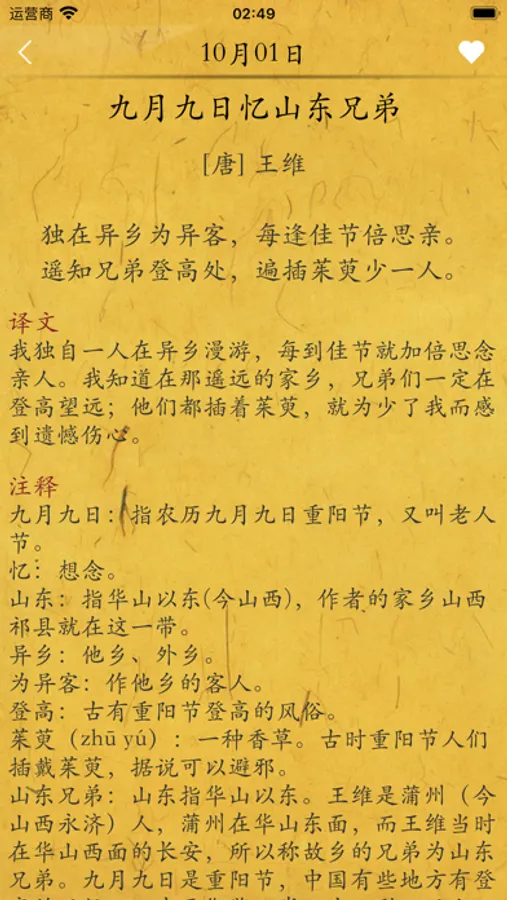 运营商
02:49
10月01日
九月九日忆山东兄弟
[唐] 王维
独在异乡为异客，每逢佳节倍思亲。
遥知兄弟登高处，遍插茱萸少一人。
译文
我独自一人在异乡漫游，每到佳节就加倍思念
亲人。我知道在那遥远的家乡，兄弟们一定在
登高望远；他们都插着茱萸，就为少了我而感
到遗憾伤心。
注释
九月九日：指农历九月九日重阳节，又叫老人
节。
忆：想念。
山东：指华山以东(今山西)，作者的家乡山西
祁县就在这一带。
异乡：他乡、外乡。
为异客：作他乡的客人。
登高：古有重阳节登高的风俗。
茱萸（zhū yú）：一种香草。古时重阳节人们
插戴茱萸，据说可以避邪。
山东兄弟：山东指华山以东。王维是蒲州（今
山西永济）人，蒲州在华山东面，而王维当时
在华山西面的长安，所以称故乡的兄弟为山东
兄弟。九月九日是重阳节，中国有些地方有登